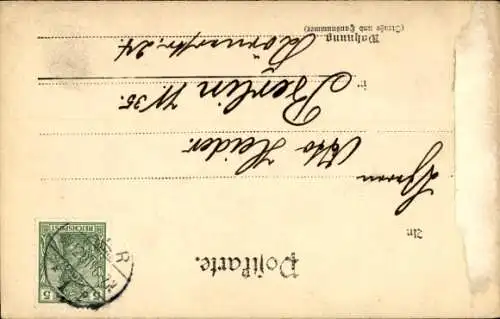 Postkarte.
An
Herrn Otto Heider.
in Berlin W35.
Wohnung
(Straße und Hausnummer)
24.
REICHSPOST
5 5